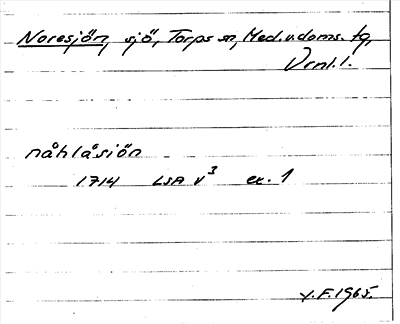 Noresjön, sjö, Torps sn, Med.v.doms. tg,
Vrml.l.
nåhlåsiön
1714 LSA V³ ex. 1
Y.F. 1965.